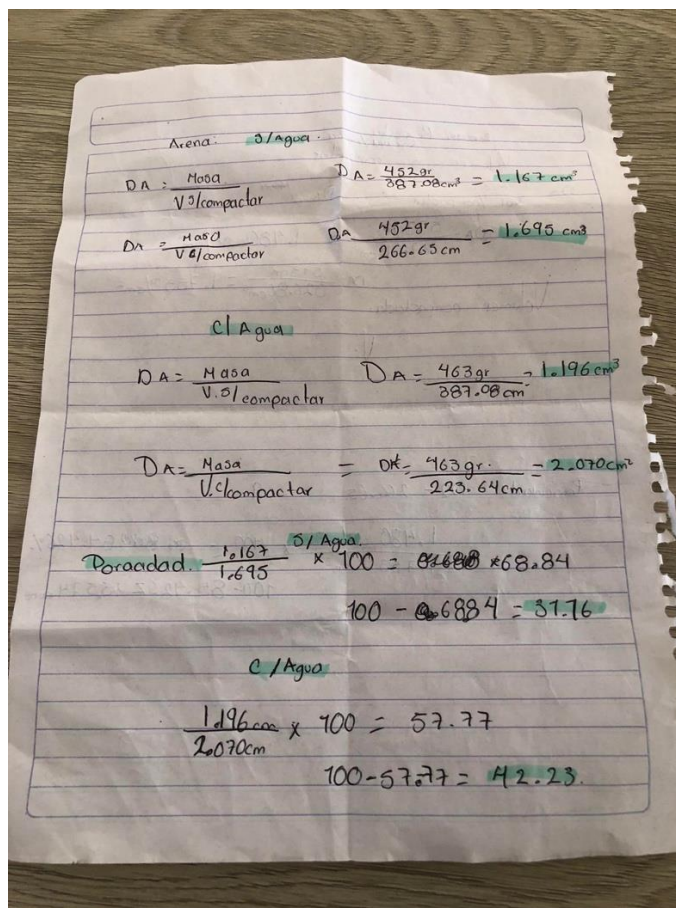 Arena: S/Agua.
DA = Masa / V S/compactar DA = 452gr / 387.08cm³ = 1.167 cm³
DA = Masa / V C/compactar DA 452gr / 266.65cm = 1.695 cm3
C/Agua
DA = Masa / V.S/compactar DA = 463gr / 387.08cm = 1.196 cm³
DA = Masa / V.C/compactar = DA = 463gr. / 223.64cm = 2.070cm²
S/Agua.
Poracidad. 1.167 / 1.695 x 100 = 68.84
100 - 6884 = 31.76
C/Agua
1.196cm / 2.070cm x 100 = 57.77
100-57.77 = 42.23.